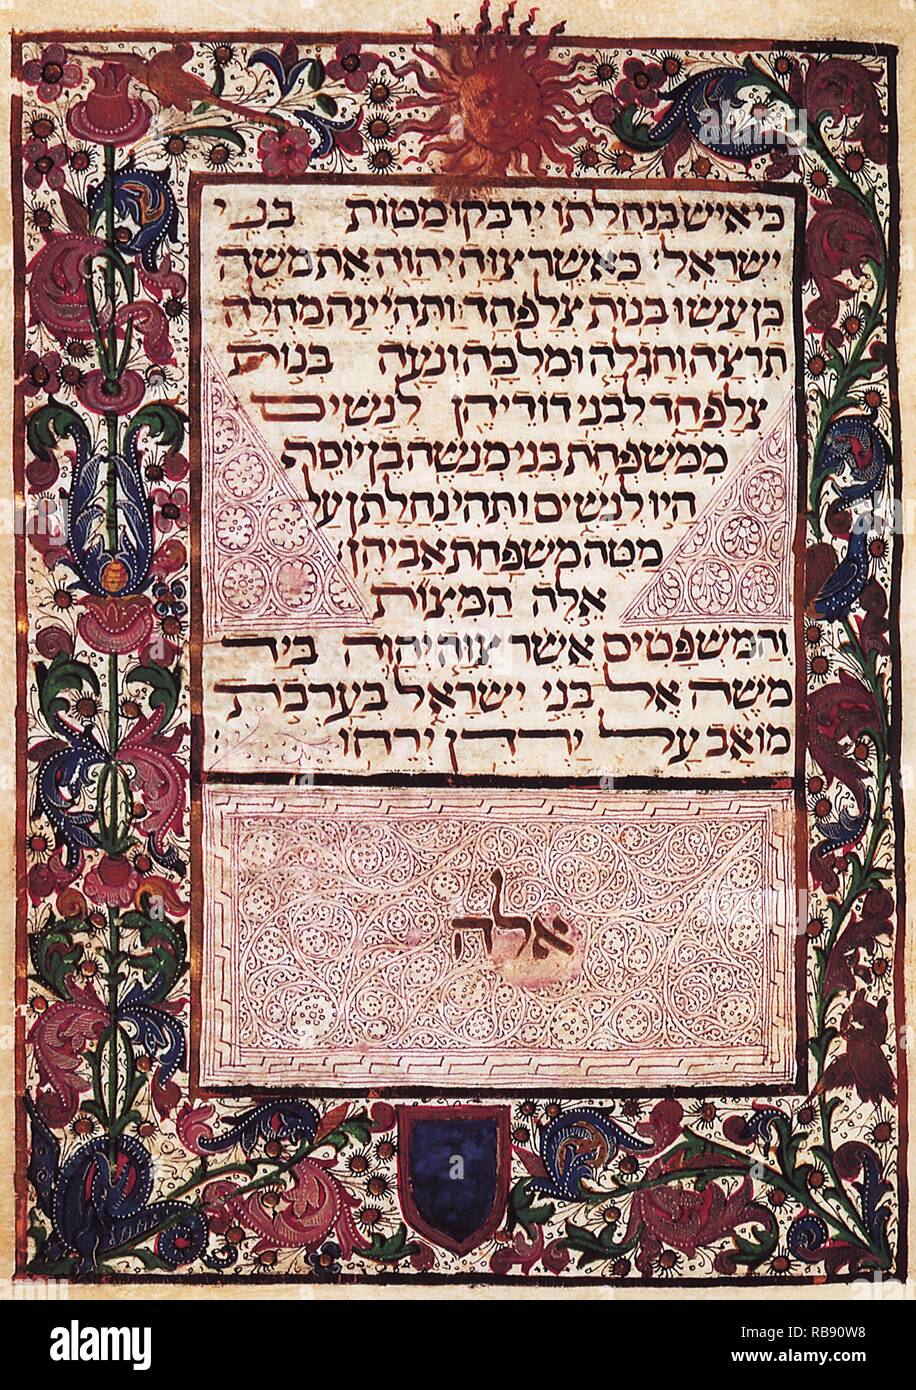 כי איש בנחלתו ידבקו מטות בני
ישראל: כאשר צוה יהוה את משה
כן עשו בנות צלפחד: ותהיינה מחלה
תרצה וחגלה ומלכה ונעה בנות
צלפחד לבני דודיהן לנשים
ממשפחת בני מנשה בן יוסף
היו לנשים ותהי נחלתן על
מטה משפחת אביהן:
אלה המצות
והמשפטים אשר צוה יהוה ביד
משה אל בני ישראל בערבת
מואב על ירדן ירחו:
אלה
alamy
Image ID: RB90W8
www.alamy.com